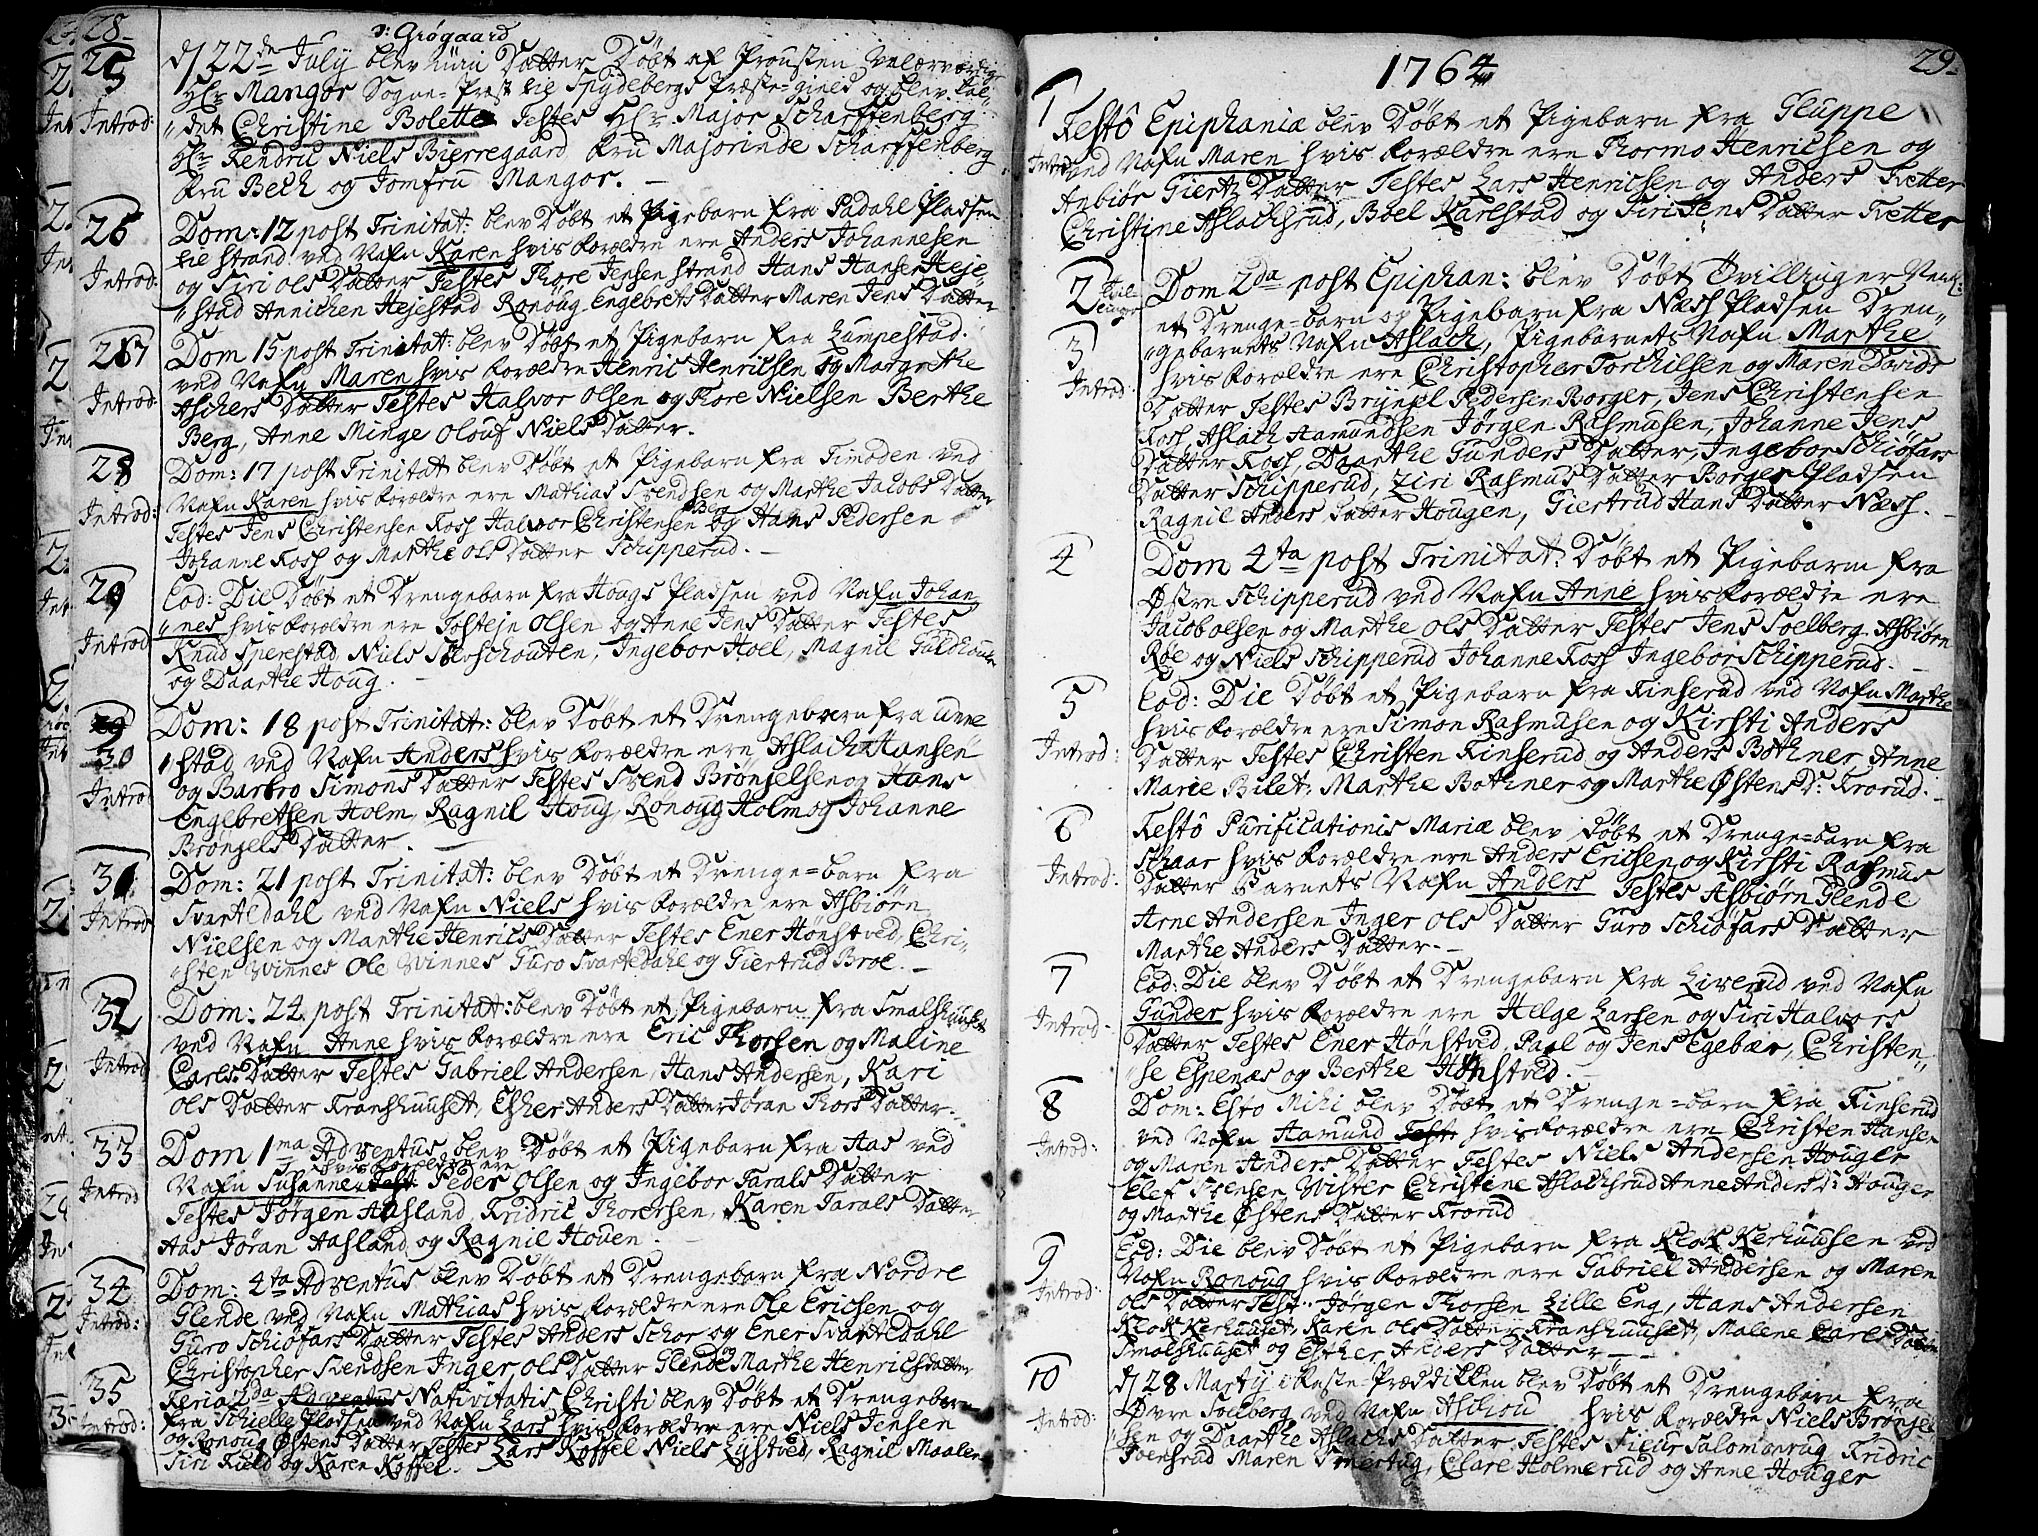 28
ɔ: Grögaard
25 d/ 22de July blev min Datter Döbt af Prousten Velærværdige
Introd: Hr Mangor Sogne-Præst til Spydebergs Præste-gield og blev kal-
det Christine Bolette Testes Hr Major Scharffenberg
Hr Niels Bierregaard, Fru Majorinde Scharffenberg
Fru Bech og Jomfru Mangor.
26 Dom: 12 post Trinitat: blev Döbt et Pigebarn fra Padahl Pladsen
til Strand ved Nafn Karen hvis Forældre ere Anders Johannesen
Introd: og Siri Ols Datter Testes Thore Jensen Strand Hans Hansen Heje-
stad Annichen Hejestad Ronoug Engebrets Datter Maren Jens Datter
27 Dom 15 post Trinitat: blev Döbt et Pigebarn fra Lumpestad.
ved Nafn Maren hvis Forældre Henric Henricksen og Margrethe
Introd: Aschers Datter Testes Halvor Olsen og Thore Nielsen Berthe
Berg, Anne Minge Olouf Niels Datter.
28 Dom: 17 post Trinitat blev Döbt et Pigebarn fra Timoden ved
Nafn Karen hvis Forældre ere Mathias Svendsen og Marthe Jacobs Datter
Introd: Testes Jens Christensen Foss Halvor Christensen Berg og Hans Pedersen
Johanne Foss og Marthe Ols Datter Schipperud.
29 Eod: Die Döbt et Drengebarn fra Hougs Pladsen ved Nafn Johan
nes hvis Forældre ere Tostejn Olsen og Anne Jens Datter Testes
Introd Knud Sperestad Niels, Ingebor Hoel, Magnil
og Daarthe Houg.
30 Dom: 18 post Trinitat: blev Döbt et Drengebarn fra Unne
stad, ved Nafn Anders hvis Forældre ere Aslach Hansen
og Barbro Simons Datter Testes Svend Brönjelsen og Hans
Introd Engebretsen Holm, Ragnil Houg, Ronoug Holm og Johanne
Bronjels Datter.
31 Dom: 21 post Trinitat: blev Döbt et Drenge-barn fra
Introd Svartedahl ved Nafn Niels hvis Forældre ere Asbiörn
Nielsen og Marthe Henrics Datter Testes Ener Hönstved, Chri-
sten Winnes Ole Winnes Guro Svartedahl og Giertrud Broe.
32 Dom: 24 post Trinitat: blev Döbt et Pigebarn fra Smalshuuset
ved Nafn Anne hvis Forældre ere Eric Thorsen og Maline
Introd Carls Datter Testes Gabriel Andersen, Hans Andersen, Kari
Ols Datter Franshuuset, Esher Anders Datter Jöran Thors Datter.
33 Dom 1ma Adventus blev Döbt et Pigebarn fra Aas ved
hvis Forældre ere
Introd Nafn Susanne Peder Olsen og Ingebor Tarals Datter
Testes Jörgen Aasland, Fridric Thorersen, Karen Tarals Datter
Aas Jöran Aasland og Ragnil Houen.
34 Dom: 4ta Adventus blev Döbt et Drengebarn fra Nordre
Introd: Glende ved Nafn Mathias hvis Forældre ere Ole Ericsen og
Guro Schiöfars Datter Testes Anders Schor og Ener Svartedahl
Christopher Svendsen Inger Ols Datter Glende Marthe Henricsdatter
35 Feria 2da Adventus Nativitatis Christi blev Döbt et Drengebarn
Introd: fra Schielle Pladsen ved Nafn Lars hvis Forældre ere Niels Jensen
og Ronoug Östens Datter Testes Lars Koffel Niels Lystved, Ragnil Maalen
Siri Field og Karen Koffel.
1764
29
1 Festô Epiphaniæ blev Döbt et Pigebarn fra Gluppe
Introd ved Nafn Maren hvis Forældre ere Thormo Henricsen og
Anbiör Giertz Datter Testes Lars Henricsen og Anders Fietter
Christine Aslachsrud, Boel Karlstad og Siri Jens Datter Fietter
2 Dom 2da post Epiphan: blev Döbt Tvillinger
et Drenge-barn og Pigebarn fra Næss Pladsen Dren-
3 gebarnets Nafn Aslach, Pigebarnets Nafn Marthe
Introd: hvis Forældre ere Christopher Torchilsen og Maren Davids
Datter Testes Brynjel Pedersen Borger, Jens Christensen
Foss, Aslach Aamundsen Jörgen Rasmusen, Johanne Jens
Datter Foss, Daarthe Gunders Datter, Ingebor Schiöfars
Datter Schipperud, Ziri Rasmus Datter Borger Pladsen
Ragnil Anders Datter Hougen, Giertrud Hans Datter Næss.
4 Dom 4ta post Trinitat: Döbt et Pigebarn fra
Östre Schipperud ved Nafn Anne hvis Forældre ere
Jacob Olsen og Marthe Ols Datter Testes Jens Soelberg Asbiörn
Röe og Niels Schipperud Johanne Foss Ingebor Schipperud.
5 Eod: Die Döbt et Pigebarn fra Finserud ved Nafn Marthe
hvis Forældre ere Simon Rasmusen og Kirsti Anders
Introd: Datter Testes Christen Finserud og Anders Bothner Anne
Marie Bilet, Marthe Bothner og Marthe Östens D: Frorud.
6 Festô Purificationis Mariæ blev Döbt et Drenge-barn fra
Schaar hvis Forældre ere Anders Ericsen og Kirsti Rasmus
Introd: Datter Barnets Nafn Anders Testes Asbiörn Glende
Arne Andersen Inger Ols Datter Guro Schiöfars Datter
Marthe Anders Datter.
7 Eod: Die blev Döbt et Drengebarn fra Liverud ved Nafn
Gunder hvis Forældre ere Helge Larsen og Siri Halvors
Introd: Datter Testes Ener Hönstved, Paal og Jens Egebær, Christen-
se Espenæs og Berthe Hönstved.
8 Dom: Esto Mihi blev Döbt et Drenge-barn fra Finserud
Introd: ved Nafn Aamund hvis Forældre ere Christen Hansen
og Maren Anders Datter Testes Niels Andersen Houger
Elef Svensen Wister Christine Aslachsrud Anne Anders D: Houger
og Marthe Östens Datter Frorud
9 Eod: Die blev Döbt et Pigebarn fra Klokkerhuusen ved
Introd: Nafn Ronoug hvis Forældre ere Gabriel Andersen og Maren
Ols Datter Test: Jörgen Thorsen Lille Eng, Hans Andersen
Klokkerhuuset, Karen Ols Datter Franshuuset, Malene Carls Datter
Smalshuuset og Esther Anders Datter
10 d/ 28 Martij i Faste-Præddikken blev Döbt et Drengebarn fra
Introd: Övre Soelberg ved Nafn Aschou hvis Forældre Niels Brönjel
sen og Daarthe Aslachs Datter Testes Siëur Salomonrug Fridric
Svensrud Maren Smertug, Clare Holmerud og Anne Houger